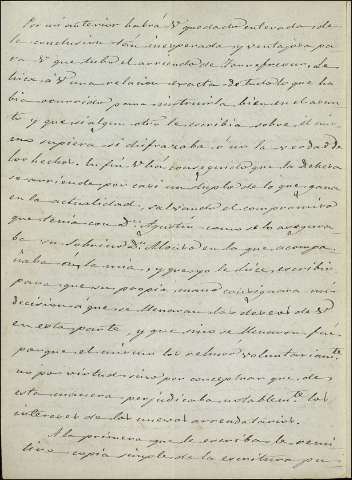 Por mi anterior habrá Vd quedado enterada de
la conclusion tan inesperada y ventajosa pa
ra Vd que tubo el arriendo de Torrefresno, de
bia á Vd una relacion exacta de todo lo que ha
bia ocurrido para instruirla bien en el asun
to y que si algun otro le escribia sobre él mis
mo supiera si disfrazaba ó no la verdad de
los hechos. En fin Vd há conseguido que la dehesa
se arriende por casi un duplo de lo que gana
en la actualidad, salvando el compromiso
que tenia con Dn Agustin como se lo asegura
ba su sobrino Dn Alonso en la que acompa
ñaba á la mia, y que yo le hice escribir
para que su propia mano consignara mi
decision á que se llenaran los deseos de Vd
en esta parte, y que si no se llenaron fué
por que el mismo los rehusó voluntariamte
no por virtud sino por conceptuar que de
esta manera perjudicaba notablemte los
intereses de los nuevos arrendatarios.
A la primera que le escriba la remi
tiré copia simple de la escritura pu